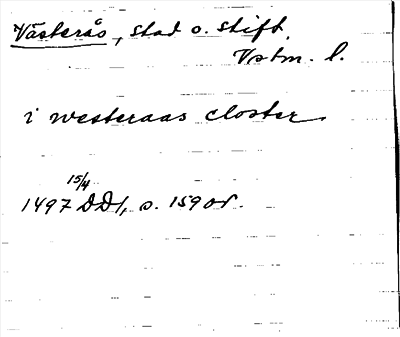 Västerås, stad o. stift,
Vstm. l.
i westeraas closter
15/4
1497 DD1, s. 159 or.